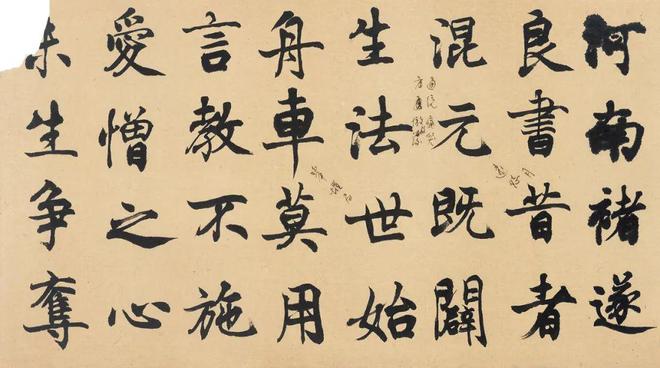 河南褚遂
良書昔者
混元既闢
生法世始
舟車莫用
言教不施
愛憎之心
未生争奪